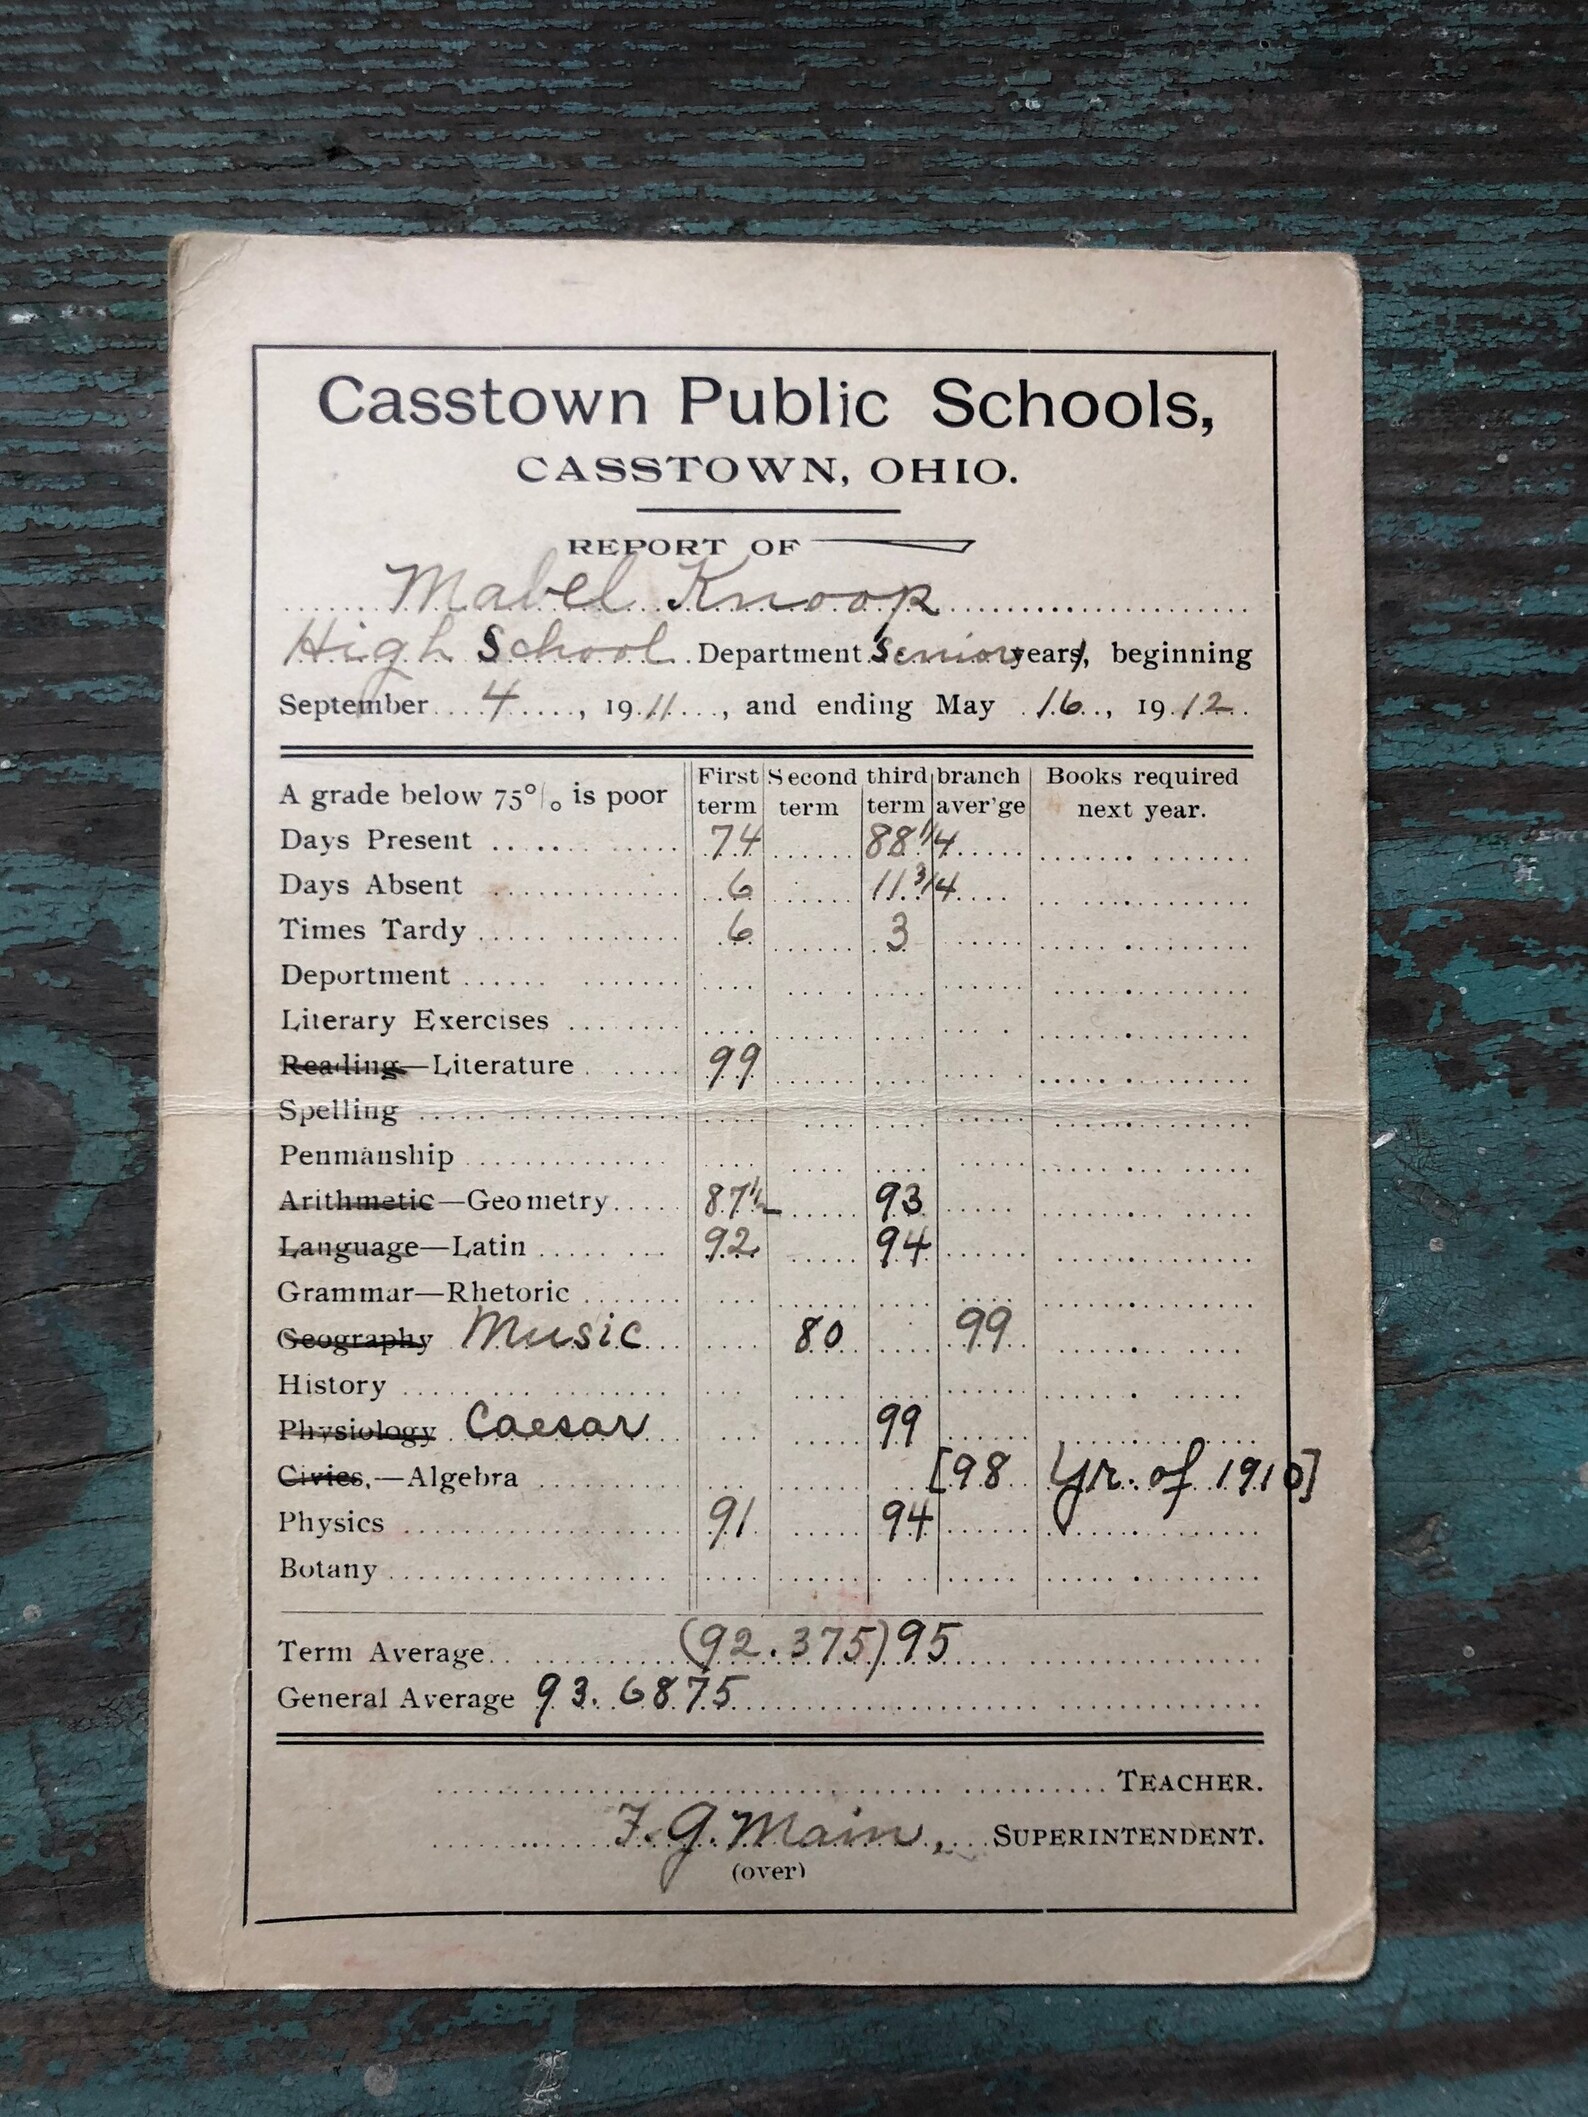 Casstown Public Schools,
CASSTOWN, OHIO.
REPORT OF
Mabel Knoop
High School Department Senior years, beginning
September 4, 1911, and ending May 16, 1912
A grade below 75% is poor First term Second term third term branch aver'ge Books required next year.
Days Present 74 88 1/4
Days Absent 6 11 3/4
Times Tardy 6 3
Deportment
Literary Exercises
Reading—Literature 99
Spelling
Penmanship
Arithmetic—Geometry 87 1/2 93
Language—Latin 92 94
Grammar—Rhetoric
Geography Music 80 99
History
Physiology Caesar 99
Civics,—Algebra [98 Yr. of 1910]
Physics 91 94
Botany
Term Average (92.375) 95
General Average 93.6875
TEACHER.
F. G. Main, SUPERINTENDENT.
(over)